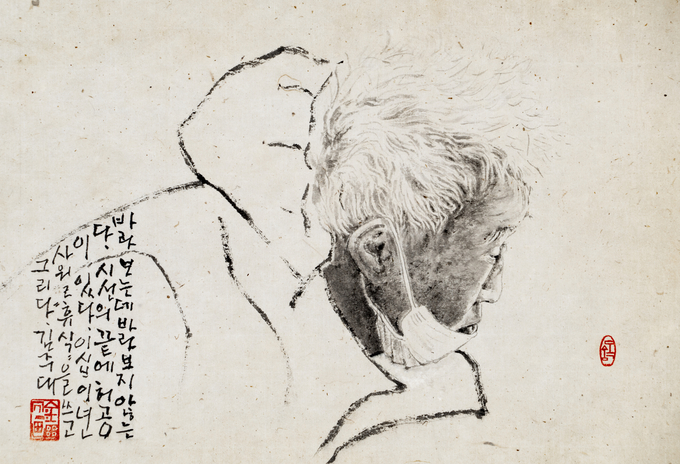 바라보는데 바라보지 않는
다. 시선의 끝에 허공
이 있다. 이십일년
사월 휴식을 쓰고
그리다. 김주대